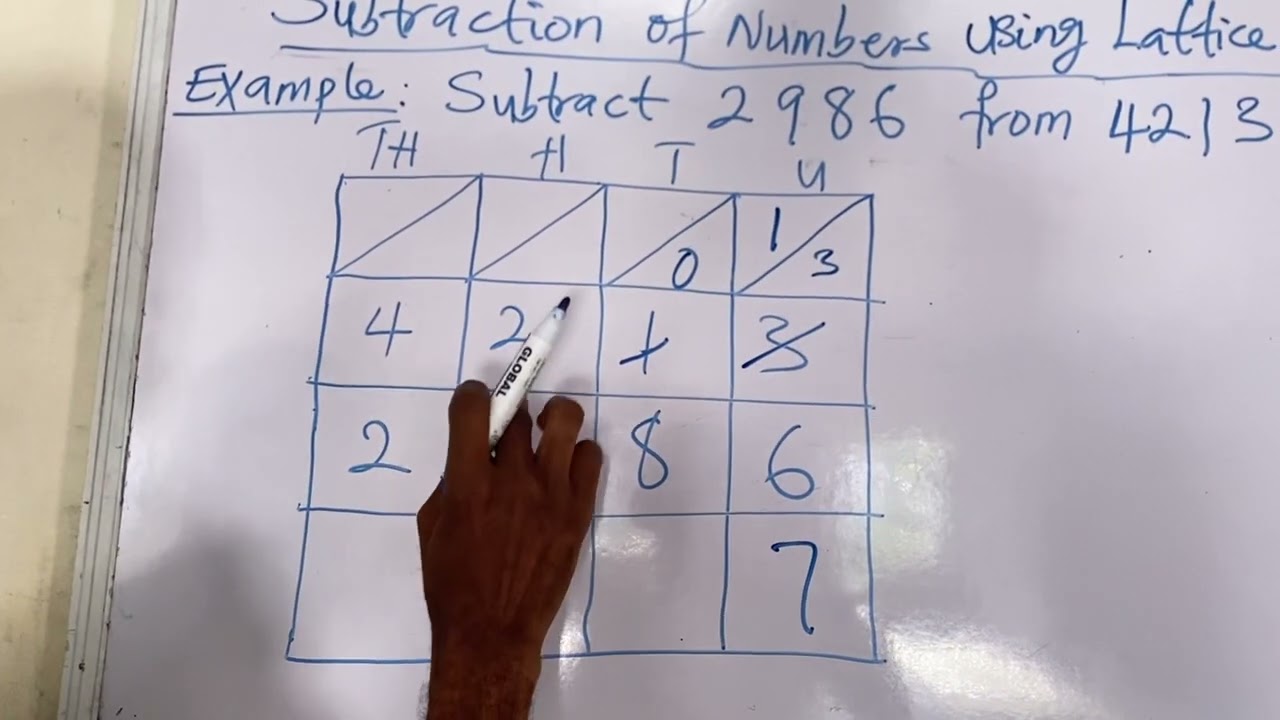 Subtraction of Numbers using Lattice
Example: Subtract 2986 from 4213
TH H T U
0 1 3
4 2 1 3
2 8 6
7
GLOBAL